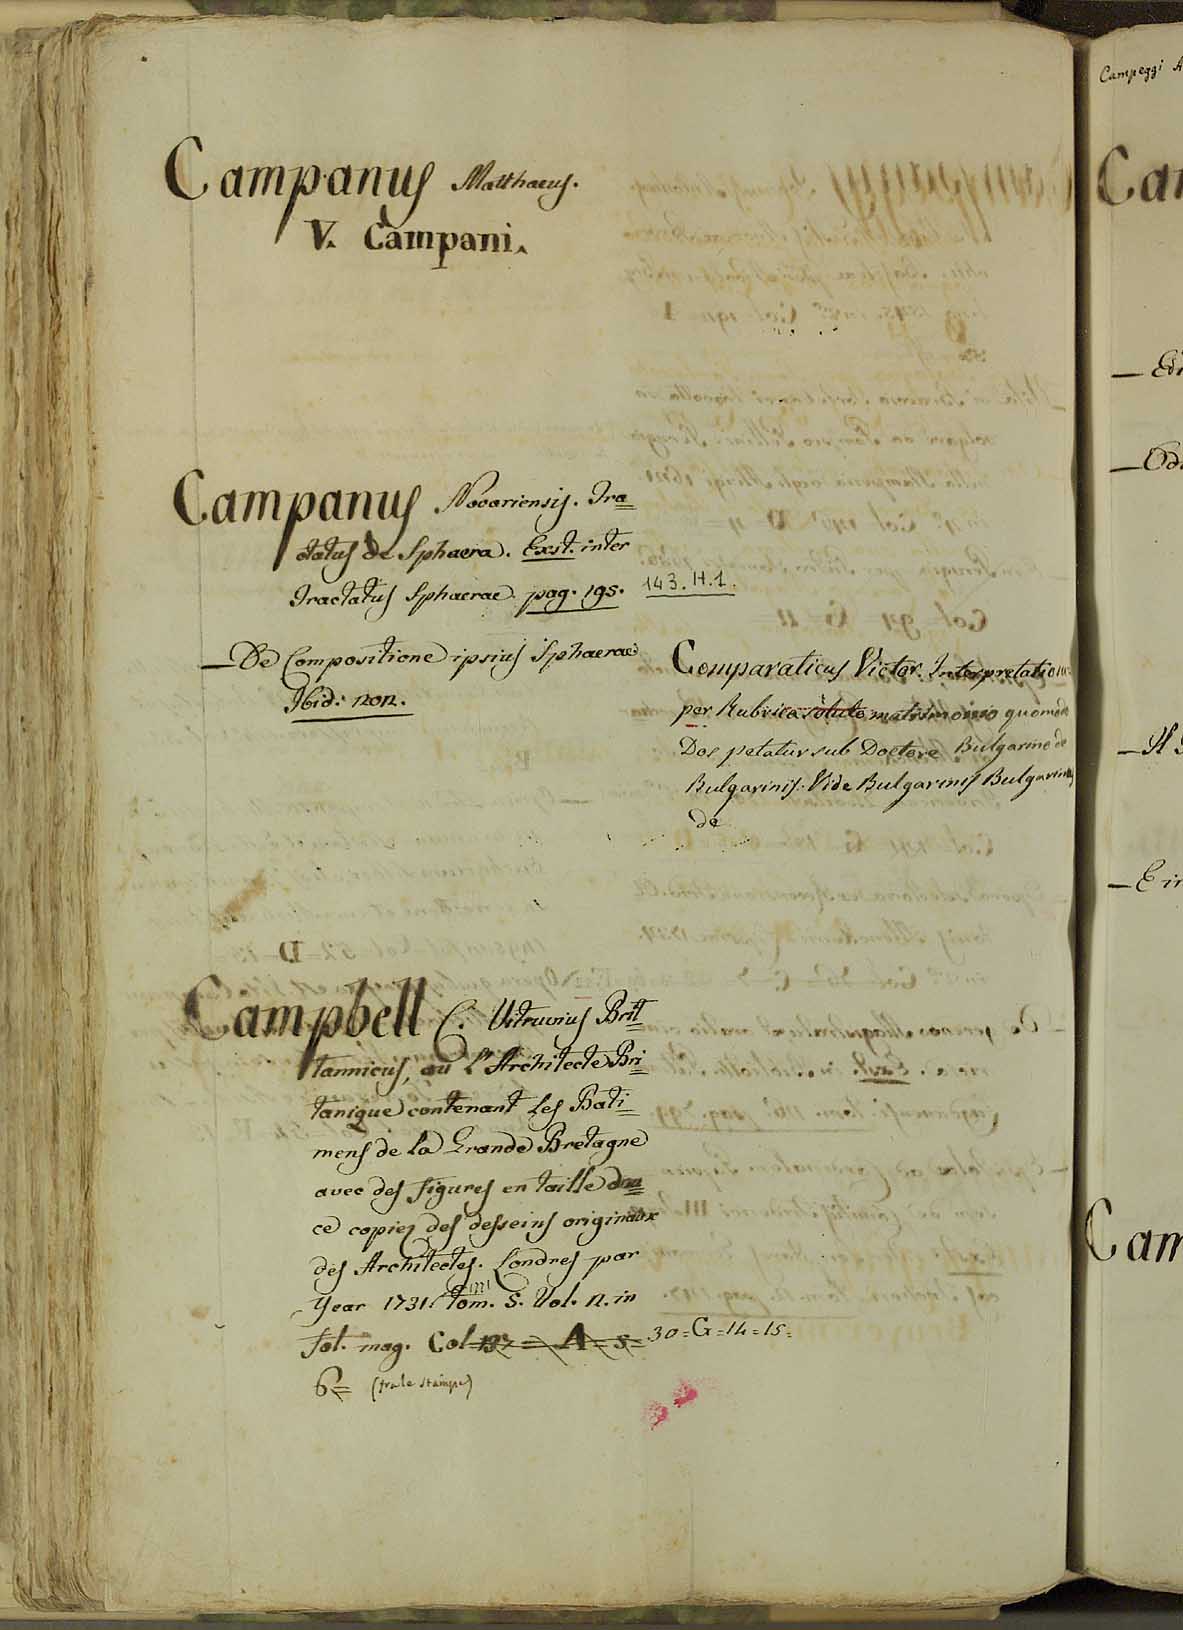 Campanus Matthaeus.
V. Campani.
Campanus Novariensis. Tra=
ctatus de Sphaera. Exst. inter
Tractatus Sphaerae pag. 195. 143. H. 1.
— De Compositione ipsius Sphaerae
Ibid: non.
Comparaticus Victor. Interpretatio
per Rubrica soluto matrimonio quomodo
Dos petatur sub Doctore Bulgarino de
Bulgarinis. Vide Bulgarinis Bulgarinus
de
Campbell C. Vitruvius Brit=
tannicus, ou L'Architecte Bri=
tanique contenant les Bati=
mens de la Grande Bretagne
avec des figures en taille dou=
ce copiez des desseins originaux
des Architectes. Londres par
Year 1731. tom. 5. Vol. n. in
fol. mag. Col 137 = A = 5 = 30 = G = 14 = 15 =
6 = (fra le stampe)
Campeggi A
Ca
— Edi
— Od
— Il
— E in
Cam